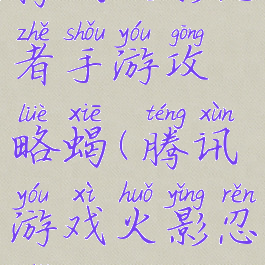 zhě shǒu yóu gōng
者手游攻
lüè xiē téng xùn
略蝎(腾讯
yóu xì huǒ yǐng rěn
游戏火影忍